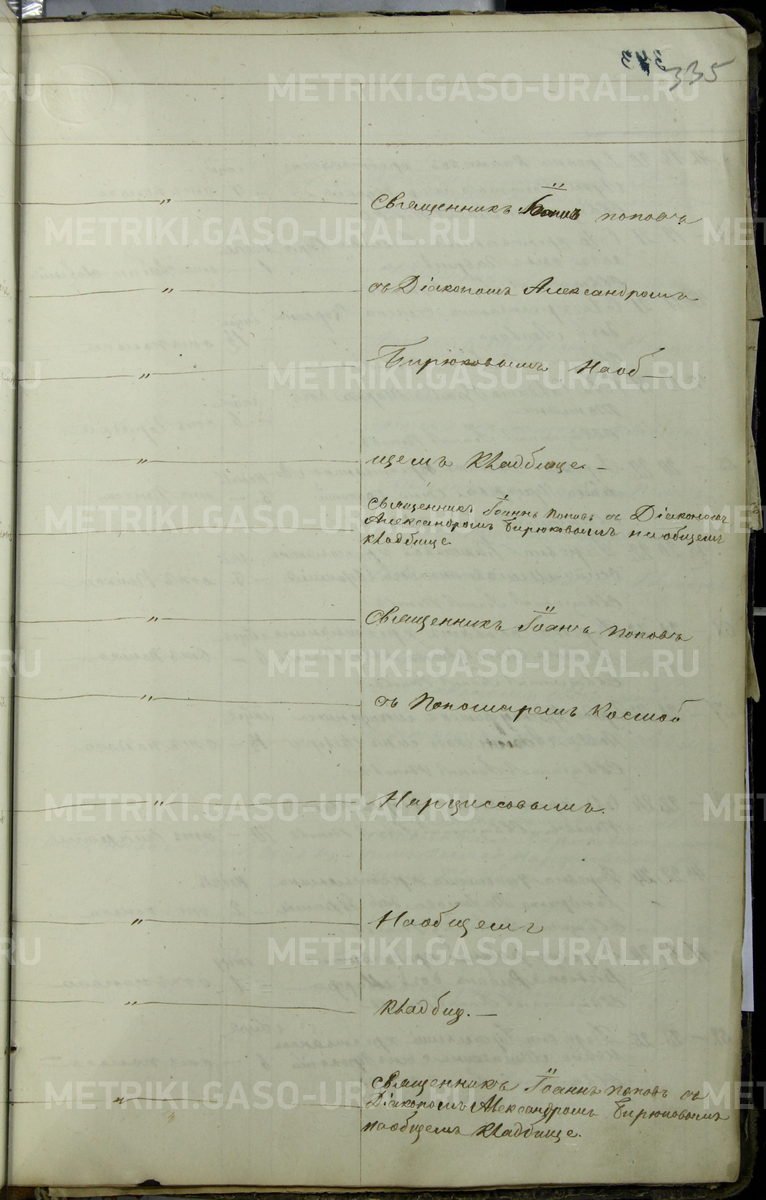 335
Священникъ Іоаннъ Поповъ
съ Діакономъ Александромъ
Бирюковымъ Наоб
щемъ Кладбище. —
Священникъ Іоаннъ Поповъ съ Діакономъ
Александромъ Бирюковымъ на общемъ
Кладбище.
Священникъ Іоаннъ Поповъ
съ Пономаремъ Космой
Нарциссовымъ.
Наобщемъ
Кладбищ. —
Священникъ Іоаннъ Поповъ съ
Діакономъ Александромъ Бирюковымъ
наобщемъ Кладбище.
METRIKI.GASO-URAL.RU